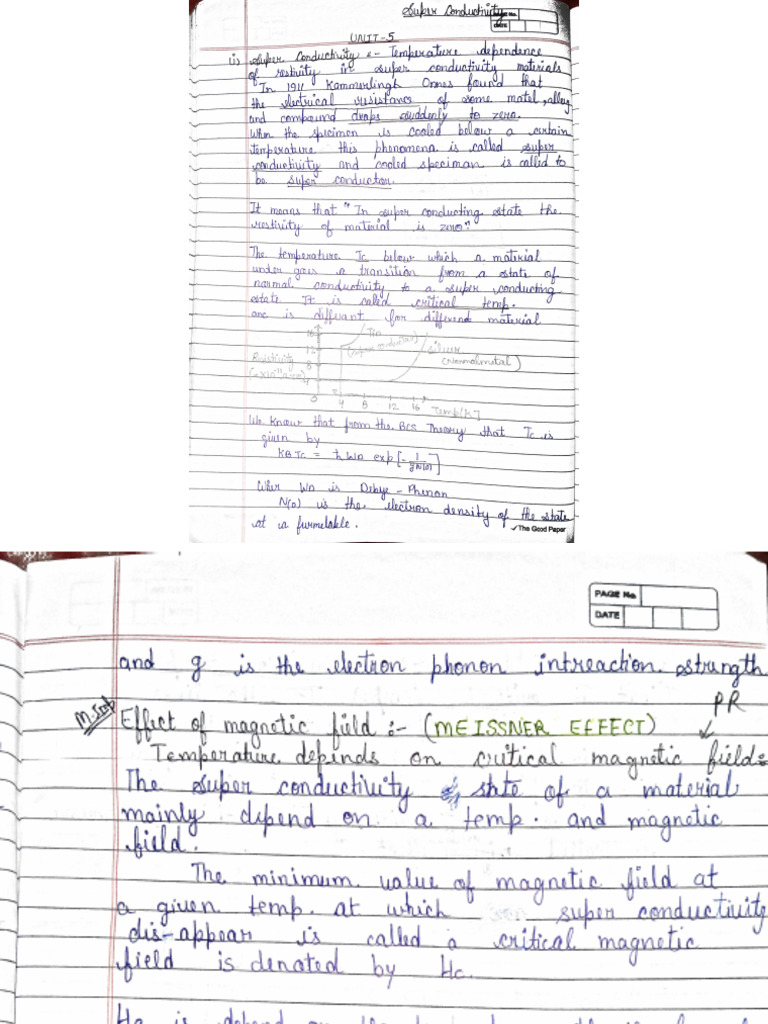 Super Conductivity
Page No.
DATE
UNIT-5
is Super Conductivity :- Temperature dependence
of restivity in super conductivity materials
In 1911 Kammerlingh Onnes found that
the electrical resistance of some matel, alloy
and compound drops suddenly to zero.
When the specimen is cooled below a certain
temperature this phenomena is called super
conductivity and cooled speciman is called to
be super conductor.
It means that "In super conducting state the
restivity of material is zero".
The temperature Tc below which a material
under goes a transition from a state of
normal conductivity to a super conducting
state It is called critical temp.
one is diffuant for different material
16
Tin
12
(Super conductor)
Silver
Resistivity
8
(Normal metal)
4
0
4 8 12 16
Temp(K)
We know that from the BCS Theory that Tc is
given by
KB Tc = ħ WD exp [- 1/gN(0)]
Wher WD is Debye - Phenon
N(0) is the electron density of the state
at a furmelable.
✓The Good Paper
PAGE No.
DATE
and g is the electron phonon intreaction strength
M.Imp
PR
Effect of magnetic field :- (MEISSNER EFFECT)
Temperature depinds on critical magnetic field:-
The super conductivity state of a material
mainly dipend on a temp. and magnetic
field.
The minimum value of magnetic field at
a given temp. at which super conductivity
dis-appear is called a critical magnetic
field is denated by Hc.
Hc is depend on the